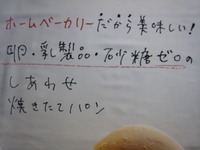 ホームベーカリーだから美味しい!
卵・乳製品・砂糖ゼロの
しあわせ
焼きたてパン